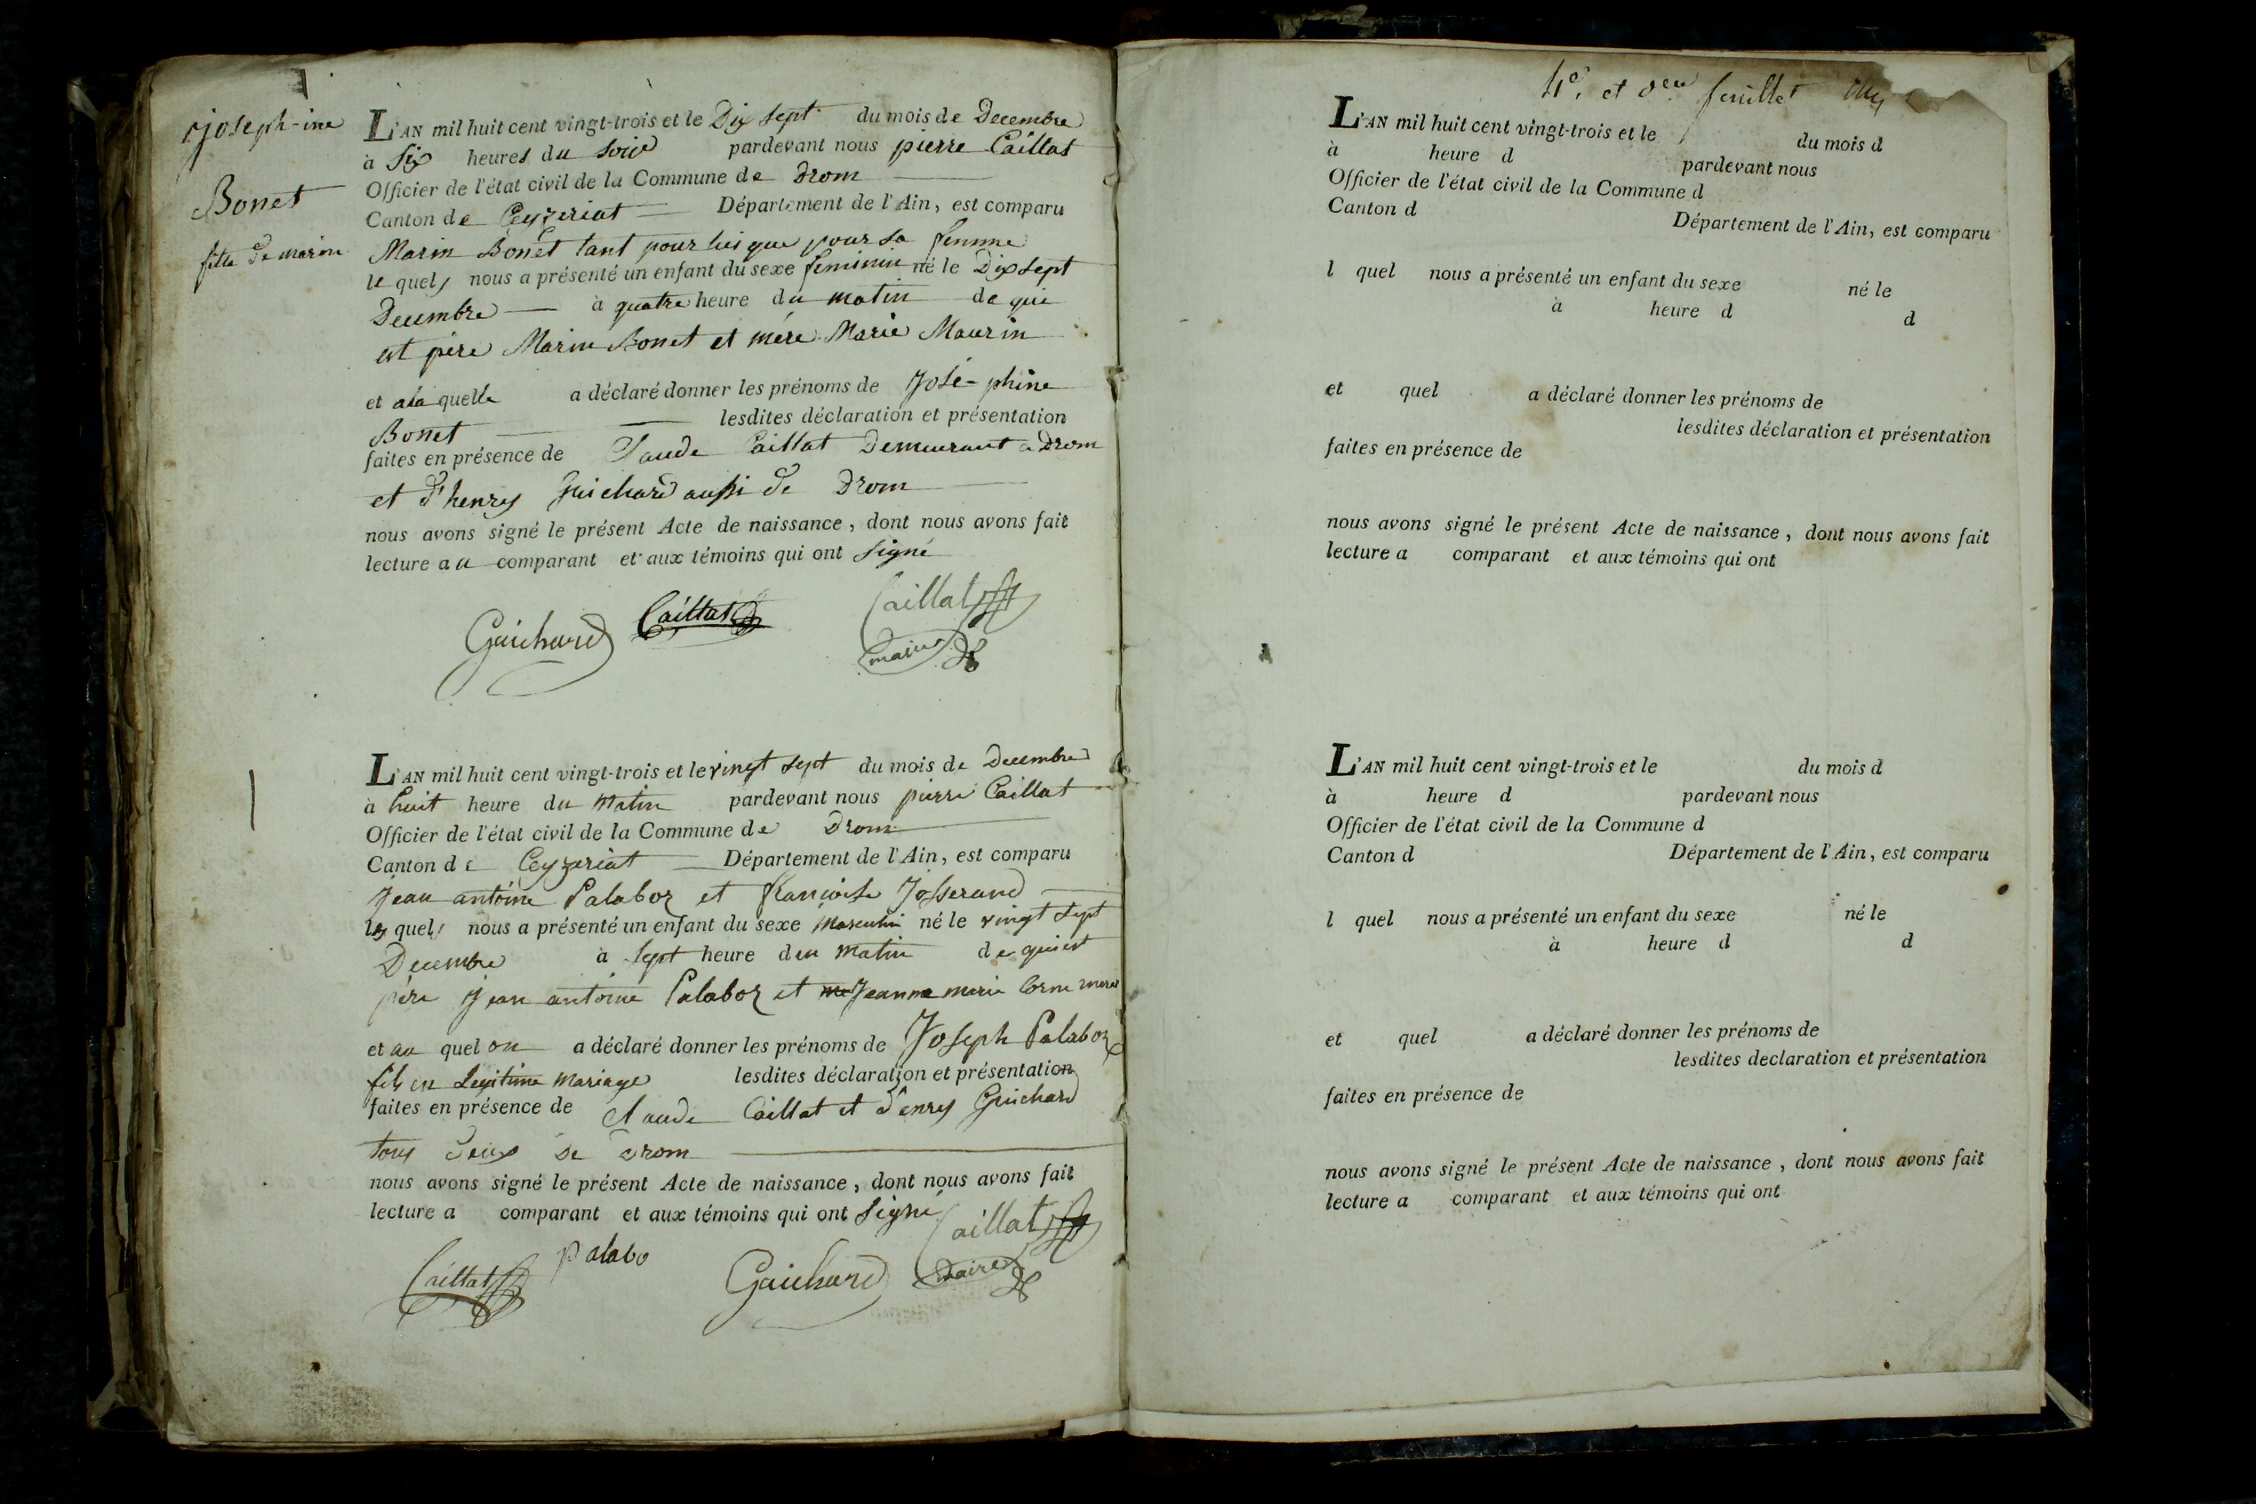 josephine
Bonet
fille de marin
L'AN mil huit cent vingt-trois et le Dix sept du mois de Decembre
à Six heures du soir pardevant nous pierre Caillat
Officier de l'état civil de la Commune de Drom
Canton de Ceyzeriat Département de l'Ain, est comparu
Marin Bonet tant pour lui que pour sa femme
le quel nous a présenté un enfant du sexe feminin né le Dix sept
Decembre à quatre heure du matin de qui
est père Marin Bonet et mére Marie Maurin
et a la quelle a déclaré donner les prénoms de José-phine
Bonet lesdites déclaration et présentation
faites en présence de Claude Caillat Demeurant a Drom
et d'henry Guichard aussi de Drom
nous avons signé le présent Acte de naissance, dont nous avons fait
lecture au comparant et aux témoins qui ont signé
Guichard Caillat Caillat
maire
L'AN mil huit cent vingt-trois et le vingt sept du mois de Decembre
à huit heure du matin pardevant nous pierre Caillat
Officier de l'état civil de la Commune de Drom
Canton de Ceyzeriat Département de l'Ain, est comparu
Jean antoine Palaboz et francoise Josserand
les quels nous a présenté un enfant du sexe Masculin né le vingt sept
Decembre à Sept heure du matin de qui est
père Jean antoine Palaboz et Jeanne marie Corne mere
et au quel on a déclaré donner les prénoms de Joseph Palaboz
fils en Legitime mariage lesdites déclaration et présentation
faites en présence de Claude Caillat et d'enry Guichard
tous deux de Drom
nous avons signé le présent Acte de naissance, dont nous avons fait
lecture a comparant et aux témoins qui ont signé
Caillat palabo Guichard Caillat
maire
4e. et feuillet
L'AN mil huit cent vingt-trois et le du mois d
à heure d pardevant nous
Officier de l'état civil de la Commune d
Canton d Département de l'Ain, est comparu
l quel nous a présenté un enfant du sexe né le
à heure d d
et quel a déclaré donner les prénoms de
lesdites déclaration et présentation
faites en présence de
nous avons signé le présent Acte de naissance, dont nous avons fait
lecture a comparant et aux témoins qui ont
L'AN mil huit cent vingt-trois et le du mois d
à heure d pardevant nous
Officier de l'état civil de la Commune d
Canton d Département de l'Ain, est comparu
l quel nous a présenté un enfant du sexe né le
à heure d d
et quel a déclaré donner les prénoms de
lesdites declaration et présentation
faites en présence de
nous avons signé le présent Acte de naissance, dont nous avons fait
lecture a comparant et aux témoins qui ont